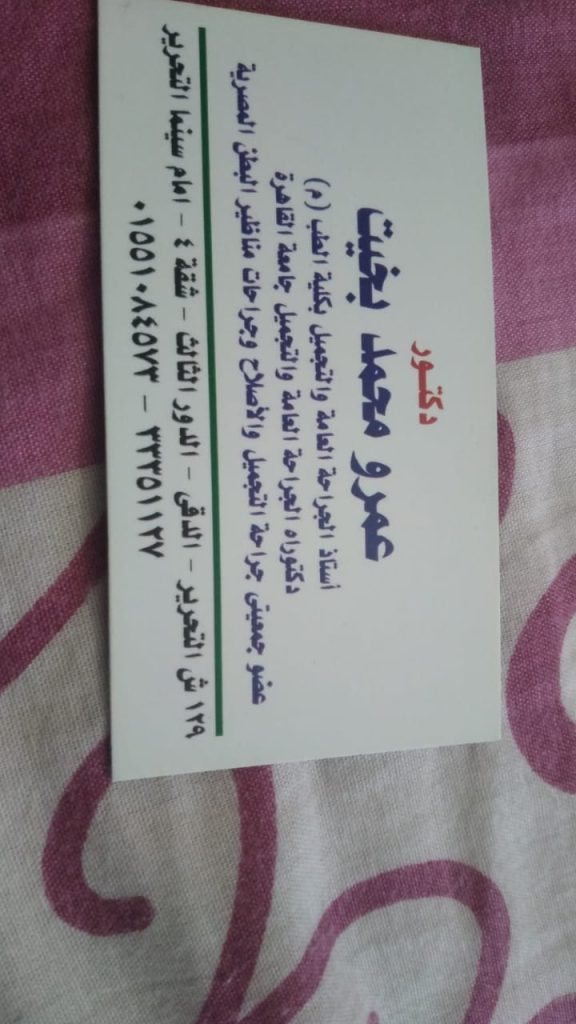 دكتور
عمرو محمد بخيت
أستاذ الجراحة العامة والتجميل بكلية الطب (م)
دكتوراه الجراحة العامة والتجميل جامعة القاهرة
عضو جمعيتى جراحة التجميل والأصلاح وجراحات مناظير البطن المصرية
١٢٩ ش التحرير - الدقى - الدور الثالث - شقة ٤ - امام سينما التحرير
٠١٥٥١٠٨٤٥٧٣ - ٣٣٣٥١١٢٧